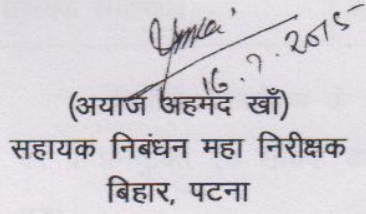 16.7.2015
(अयाज अहमद खाँ)
सहायक निबंधन महा निरीक्षक
बिहार, पटना